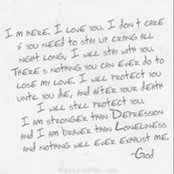 I'm here. I love you. I don't care
if you need to stay up crying all
night long, I will stay with you.
There's nothing you can ever do to
lose my love. I will protect you
until you die, and after your death
I will still protect you.
I am stronger than Depression
and I am braver than Loneliness
and nothing will ever exhaust me.
-God